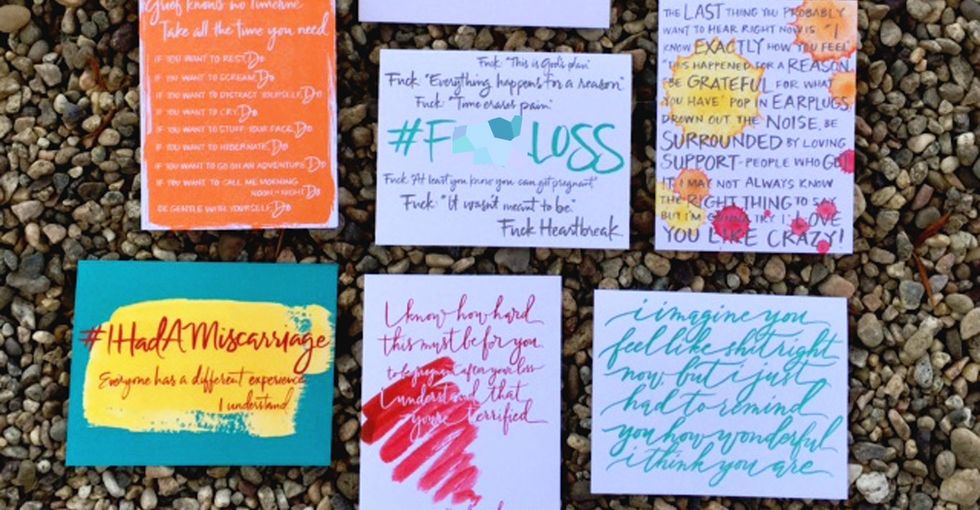 Grief knows no timeline
Take all the time you need
IF YOU WANT TO REST, Do
IF YOU WANT TO SCREAM, Do
IF YOU WANT TO DISTRACT YOURSELF, Do
IF YOU WANT TO CRY, Do
IF YOU WANT TO STUFF YOUR FACE, Do
IF YOU WANT TO HIBERNATE, Do
IF YOU WANT TO GO ON AN ADVENTURE, Do
IF YOU WANT TO CALL ME MORNING
NOON OR NIGHT, Do
BE GENTLE WITH YOURSELF, Do
Fuck "This is God's plan"
Fuck "Everything happens for a reason"
Fuck "Time erases pain"
#F LOSS
Fuck "At least you know you can get pregnant"
Fuck "It wasn't meant to be."
Fuck Heartbreak.
THE LAST THING YOU PROBABLY
WANT TO HEAR RIGHT NOW IS "I
KNOW EXACTLY HOW YOU FEEL"
"THIS HAPPENED FOR A REASON,
BE GRATEFUL FOR WHAT
YOU HAVE" POP IN EARPLUGS,
DROWN OUT THE NOISE. BE
SURROUNDED BY LOVING
SUPPORT-PEOPLE WHO GO
I MAY NOT ALWAYS KNOW
THE RIGHT THING TO SAY
BUT I'M GONNA TRY I LOVE
YOU LIKE CRAZY!
#IHadAMiscarriage
Everyone has a different experience
I understand
I know how hard
this must be for you.
to be pregnant after your loss
I understand that
you're terrified
i imagine you
feel like shit right
now, but i just
had to remind
you how wonderful
i think you are